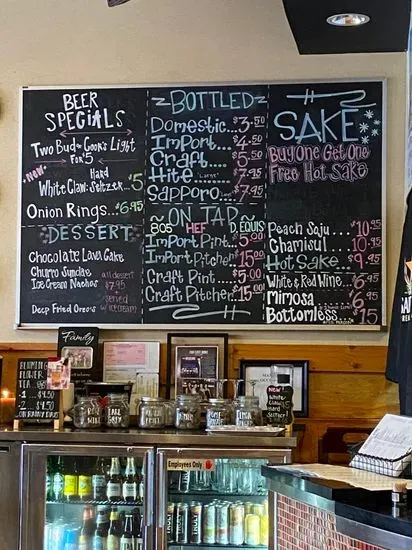 BEER
SPECIALS
Two Bud or Coors Light
For $5
New
Hard
White Claw: Seltzer...$5
Onion Rings...$6.95
DESSERT
Chocolate Lava Cake
Churro Sundae
Ice Cream Nachos
Deep Fried Oreos
all dessert
$7.95
served
w/icecream
BOTTLED
Domestic...$3.50
Import...$4.50
Craft...$5.50
Hite "Large"...$7.95
Sapporo...$7.95
ON TAP
805 HEF D. EQUIS
Import Pint...$5.00
Import Pitcher...$15.00
Craft Pint...$5.00
Craft Pitcher...$15.00
SAKE
Buy One Get One
Free Hot Sake
Peach Soju...$10.95
Chamisul...$10.95
Hot Sake...$9.95
White & Red Wine...$6.95
Mimosa...$6.95
Bottomless...$15
Family
BLOOMING
FLOWER
TEA
1 $4.50
2 $4.50
New
White
Claw
Employees Only